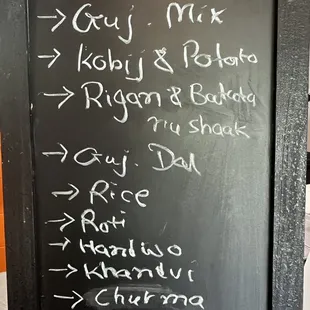 → Guj. Mix
→ Kobij & Potato
→ Rigan & Batata
nu shaak
→ Guj. Dal
→ Rice
→ Roti
→ Handwo
→ Khandvi
→ Churma